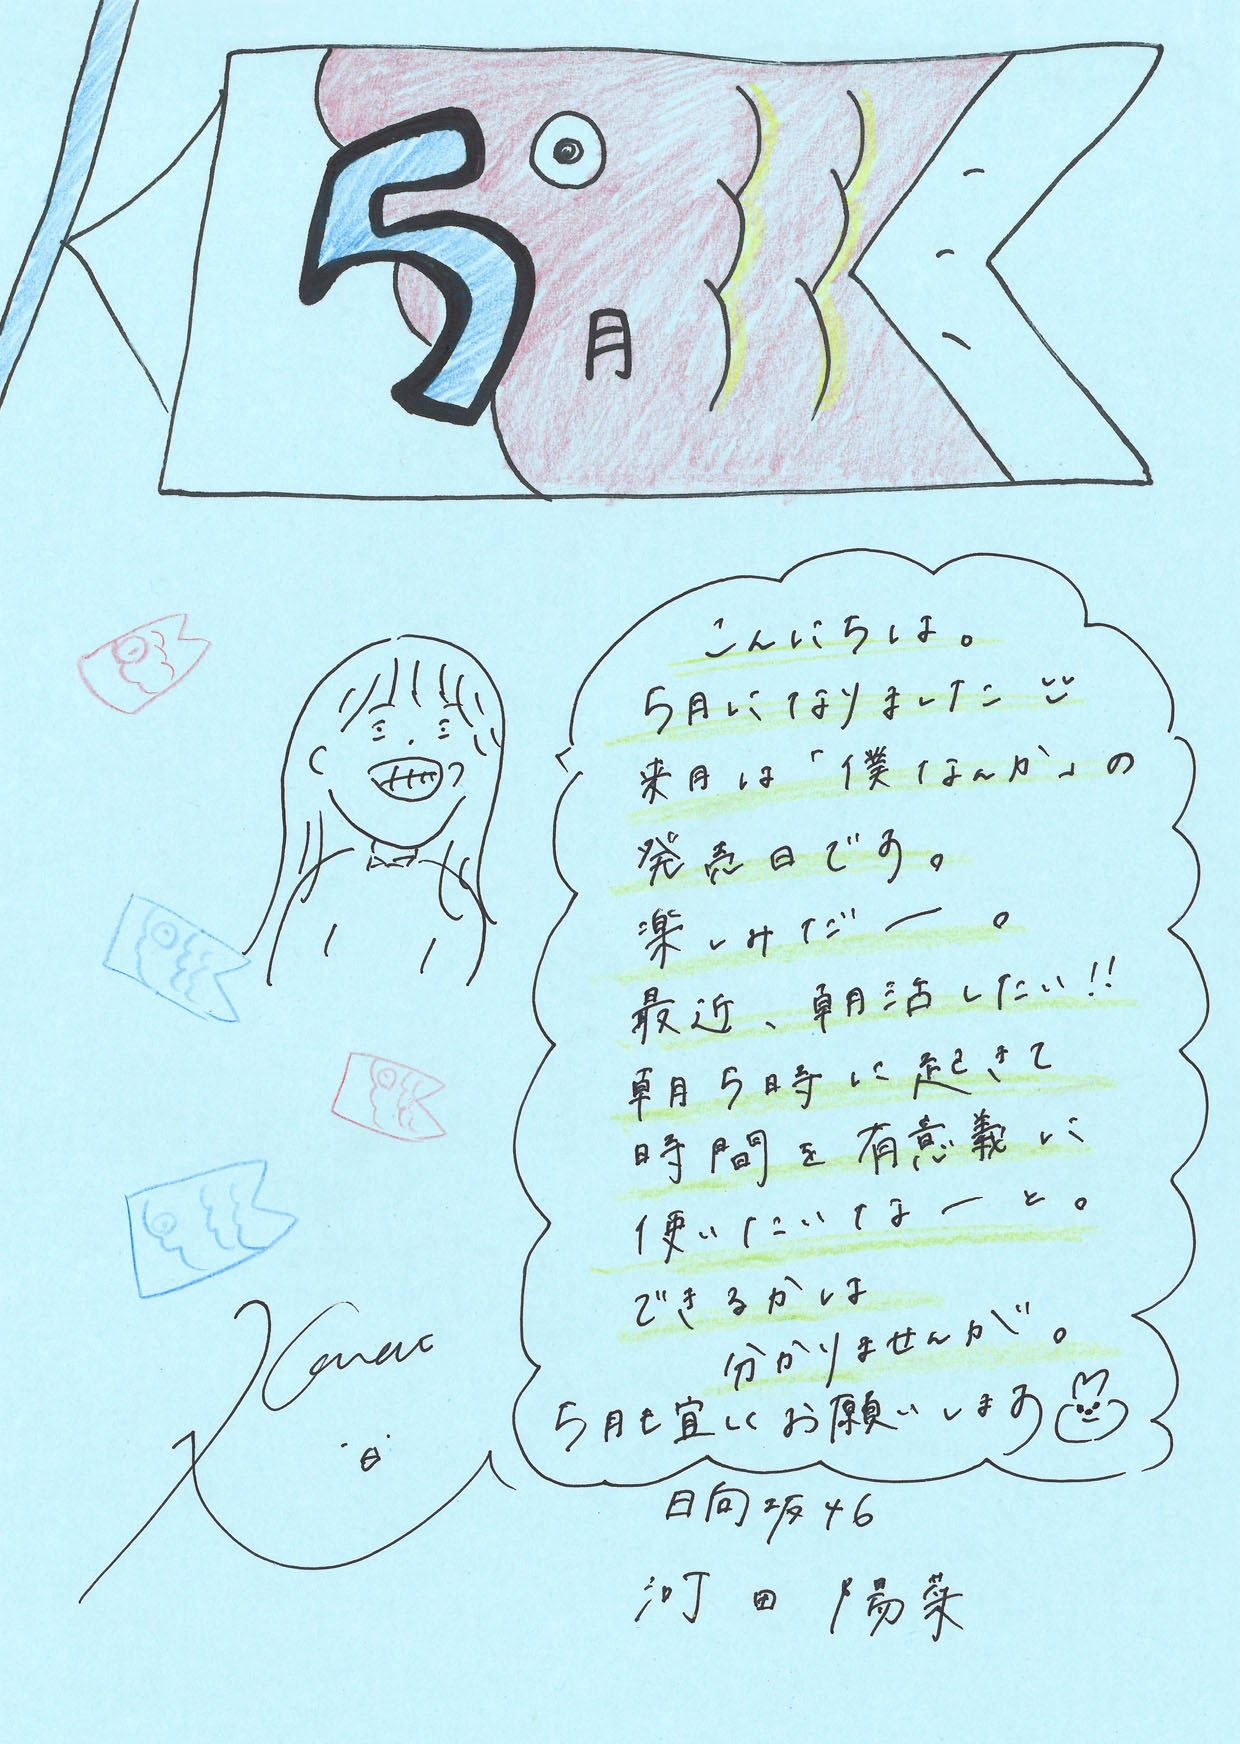 5月
こんにちは。
5月になりました
来月は「僕なんか」の
発売日です。
楽しみだー。
最近、朝活したい!!
朝5時に起きて
時間を有意義に
使いたいなーと。
できるかは
分かりませんが。
5月も宜しくお願いします
Kanau
日向坂46
河田陽菜